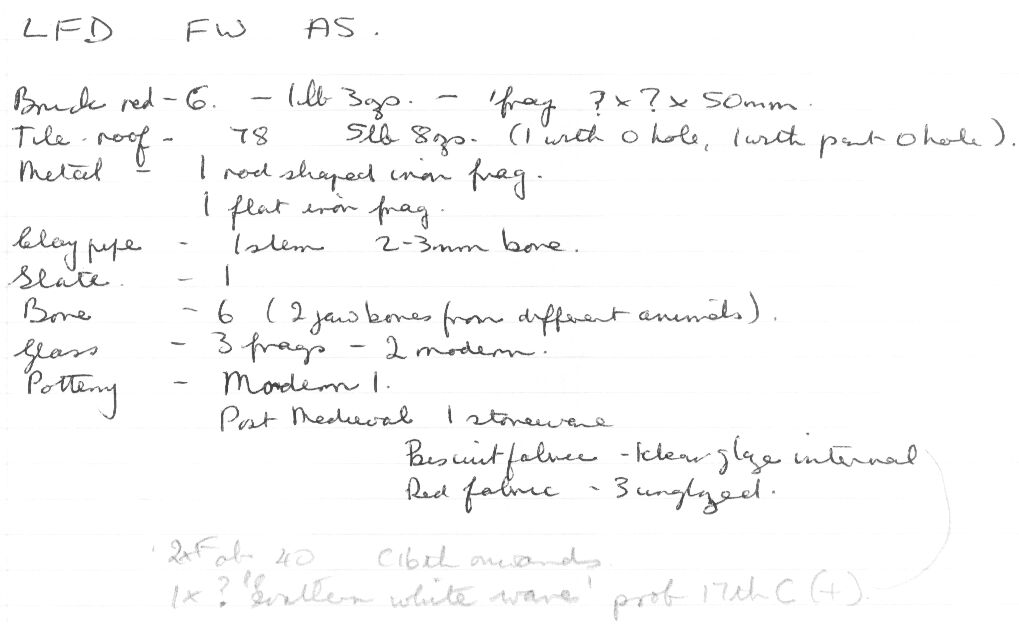 LFD FW AS.
Brick red - 6. - 1lb 3ozs. - 1 frag ? x ? x 50mm.
Tile roof - 78 5lb 8ozs. (1 with O hole, 1 with part O hole).
Metal - 1 rod shaped iron frag.
1 flat iron frag.
Clay pipe - 1 stem 2-3mm bore.
Slate. - 1
Bone - 6 (2 jaw bones from different animals).
Glass - 3 frags - 2 modern.
Pottery - Modern 1.
Post Medieval 1 stoneware
Biscuit fabric - 1 clear glaze internal
Red fabric - 3 unglazed.
2x Fab 40 C16th onwards
1x ? white ware' prob 17th C (+).